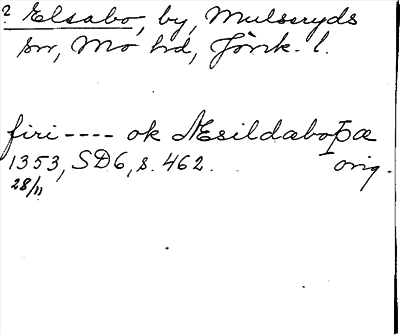 ? Elsabo, by, Mulseryds
sn, Mo hd, Jönk. l.
firi ---- ok Æsildaboþæ
1353, SD6, s. 462. orig.
28/11